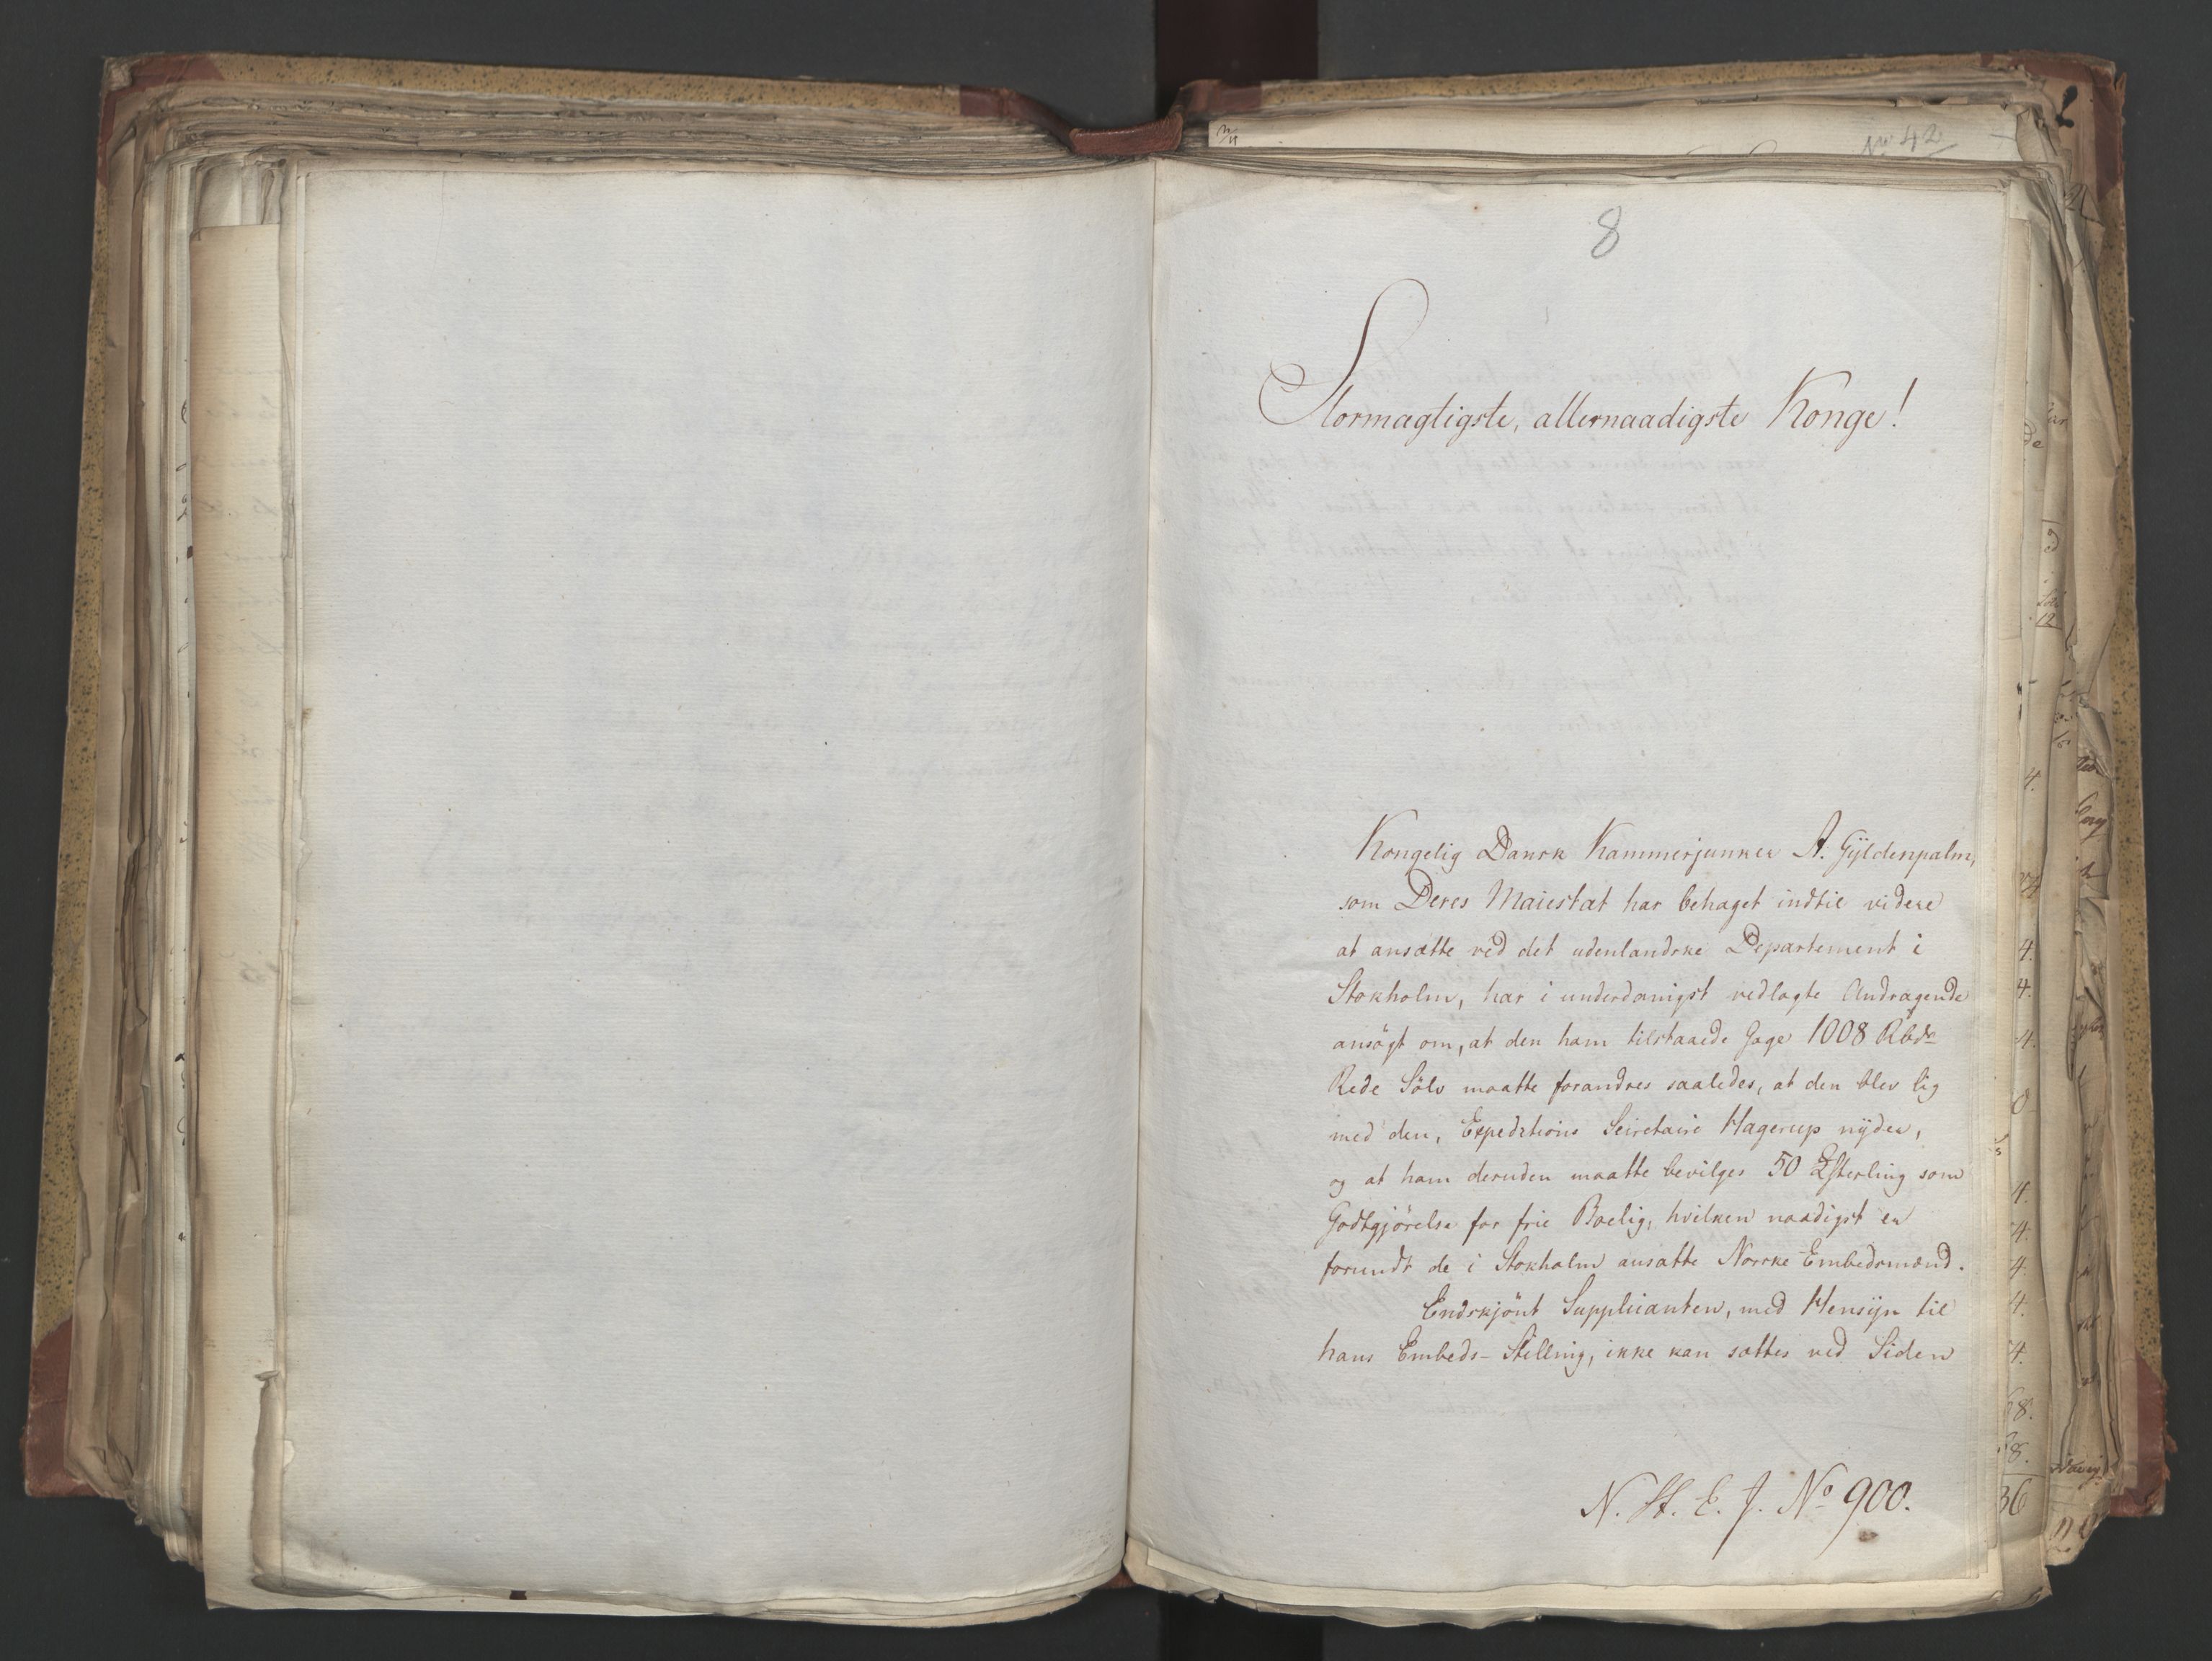 No 42
8
Stormægtigste, allernaadigste Konge!
Kongelig Dansk Kammerjunker A. Gÿldenpalm,
som Deres Maiestæt har behaget indtil videre
at ansætte ved det udenlandske Departement i
Stokholm, har i underdanigst vedlagte Andragende
ansögt om, at den ham tilstaaede Gage 1008 Rbdr
Rede Sölv maatte forandres saaledes, at den blev lig
med den, Expeditions Secretaire Hagerup nÿder,
og at ham desuden maatte bevilges 50 £ Sterling som
Godtgjörelse for frie Boelig, hvilken naadigst er
forundt de i Stokholm ansatte Norske Embedsmænd.
Endskjönt Supplicanten, med Hensÿn til
hans Embeds-Stilling, ikke kan sættes ved Siden
N. St. E. J. No 900.